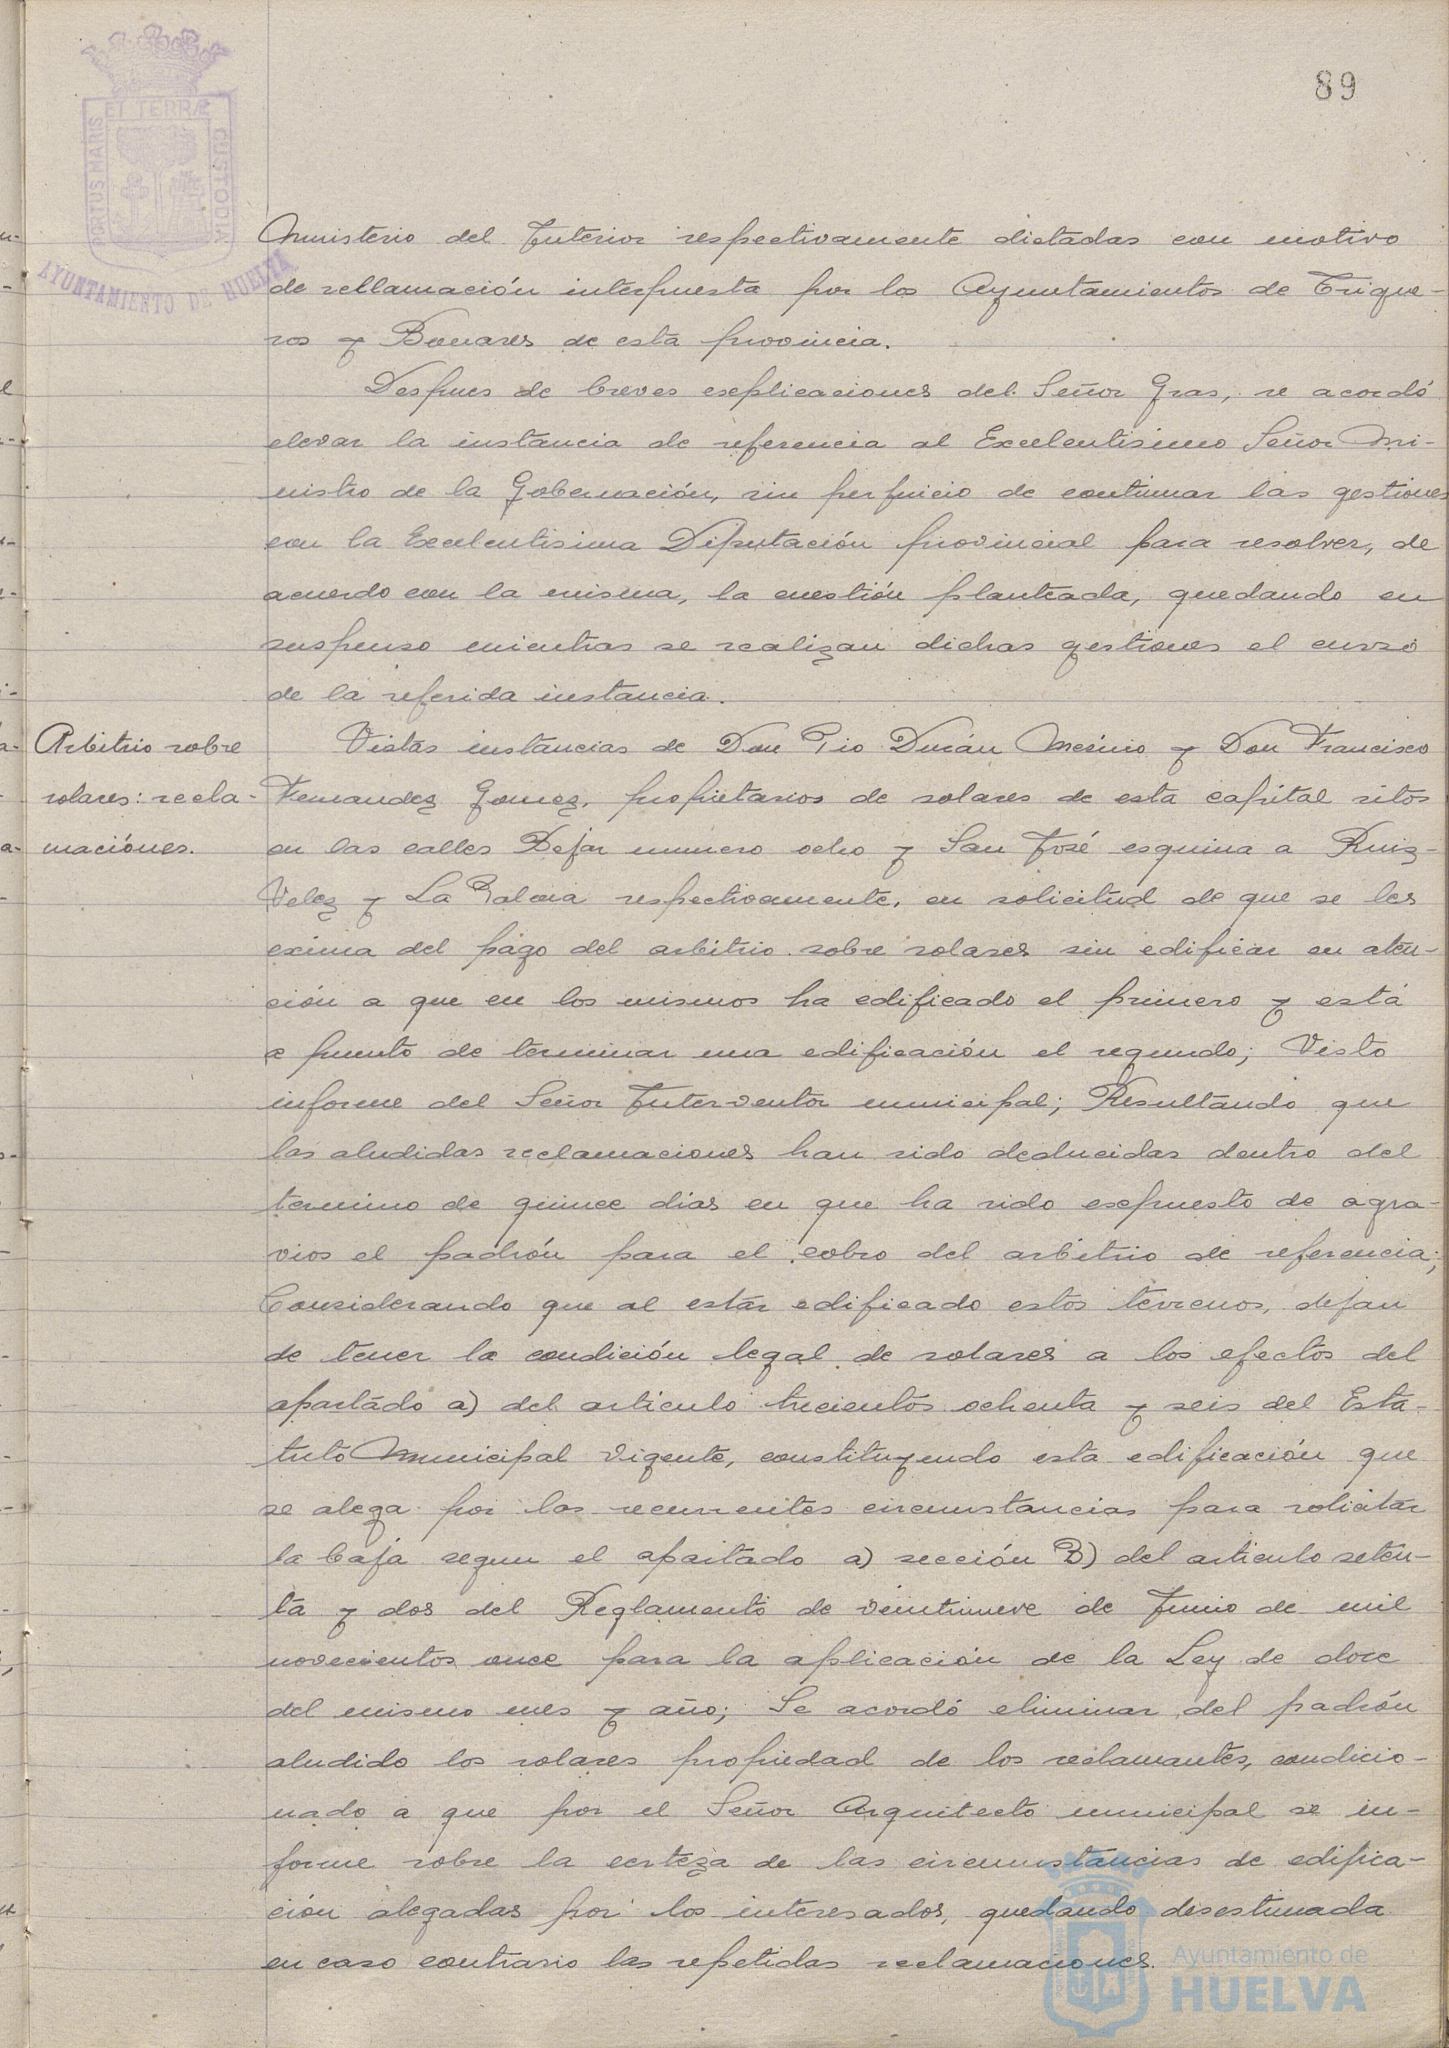 89
PORTUS MARIS ET TERRÆ CUSTODIA
AYUNTAMIENTO DE HUELVA
Ministerio del Interior respectivamente dictadas con motivo
de rellamación interpuesta por los Ayuntamientos de Trigue-
ros y Bonares de esta provincia.
Despues de breves esplicaciones del Señor Gras, se acordó
elevar la instancia de referencia al Excelentisimo Señor Mi-
nistro de la Gobernación, sin perjuicio de continuar las gestiones
con la Excelentisima Diputación provincial para resolver, de
acuerdo con la misma, la cuestión planteada, quedando en
suspenso mientras se realizan dichas gestiones el curso
de la referida instancia.
Arbitrio sobre
solares: recla-
maciónes.
Vistas instancias de Don Pio Durán y Don Francisco
Fernandez Gomez, propietarios de solares de esta capital sitos
en las calles Bejar numero ocho y San José esquina a Ruiz-
Velez y La Palma respectivamente, en solicitud de que se les
exima del pago del arbitrio sobre solares sin edificar en aten-
ción a que en los mismos ha edificado el primero y está
a punto de terminar una edificación el segundo; Visto
informe del Señor Interventor municipal; Resultando que
las aludidas reclamaciones han sido deducidas dentro del
termino de quince dias en que ha sido expuesto de agra-
vios el padrón para el cobro del arbitrio de referencia;
Considerando que al estar edificado estos terrenos, dejan
de tener la condición legal de solares a los efectos del
apartado a) del articulo trecientos ochenta y seis del Esta-
tuto Municipal vigente, constituyendo esta edificación que
se alega por los recurrentes circunstancias para solicitar
la baja segun el apartado a) sección B) del articulo seten-
ta y dos del Reglamento de veintinueve de Junio de mil
novecientos once para la aplicación de la Ley de doce
del mismo mes y año; Se acordó eliminar del padrón
aludido los solares propiedad de los reclamantes, condicio-
nado a que por el Señor Arquitecto municipal se in-
forme sobre la certeza de las circunstancias de edifica-
ción alegadas por los interesados, quedando desestimada
en caso contrario las repetidas reclamaciones.
Ayuntamiento de
HUELVA